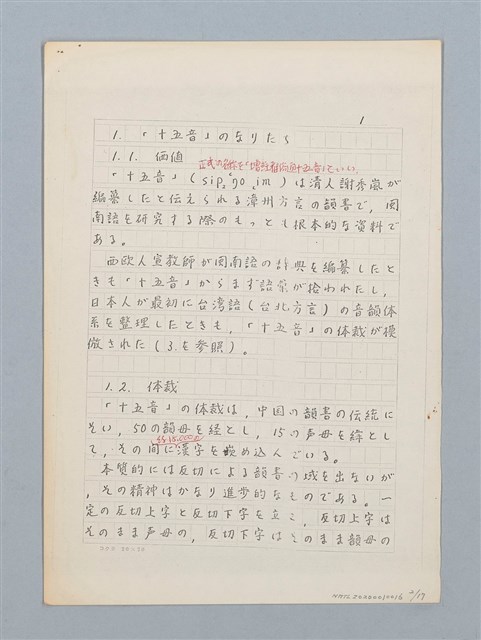 1
1. 「十五音」のなりたち
1.1. 価値
正式の名称を「増註雅俗通十五音」という。
「十五音」(sip ngo im)は清人謝秀嵐が
編纂したと伝えられる漳州方言の韻書で,閩
南語を研究する際のもっとも根本的な資料で
ある。
西欧人宣教師が閩南語の辞典を編纂したと
きも「十五音」からまず語彙が拾われたし,
日本人が最初に台湾語(台北方言)の音韻体
系を整理したときも,「十五音」の体裁が模
倣された(3.を参照)。
1.2. 体裁
「十五音」の体裁は,中国の韻書の伝統に
そい,50の韻母を経とし,15の声母を緯とし
約15,000の
て,その間に漢字を嵌め込んでいる。
本質的には反切による韻書の域を出ないが
,その精神はかなり進歩的なものである。一
定の反切上字と反切下字を立て,反切上字は
そのまま声母の,反切下字はそのまま韻母の
NMTL20220010016 2/17